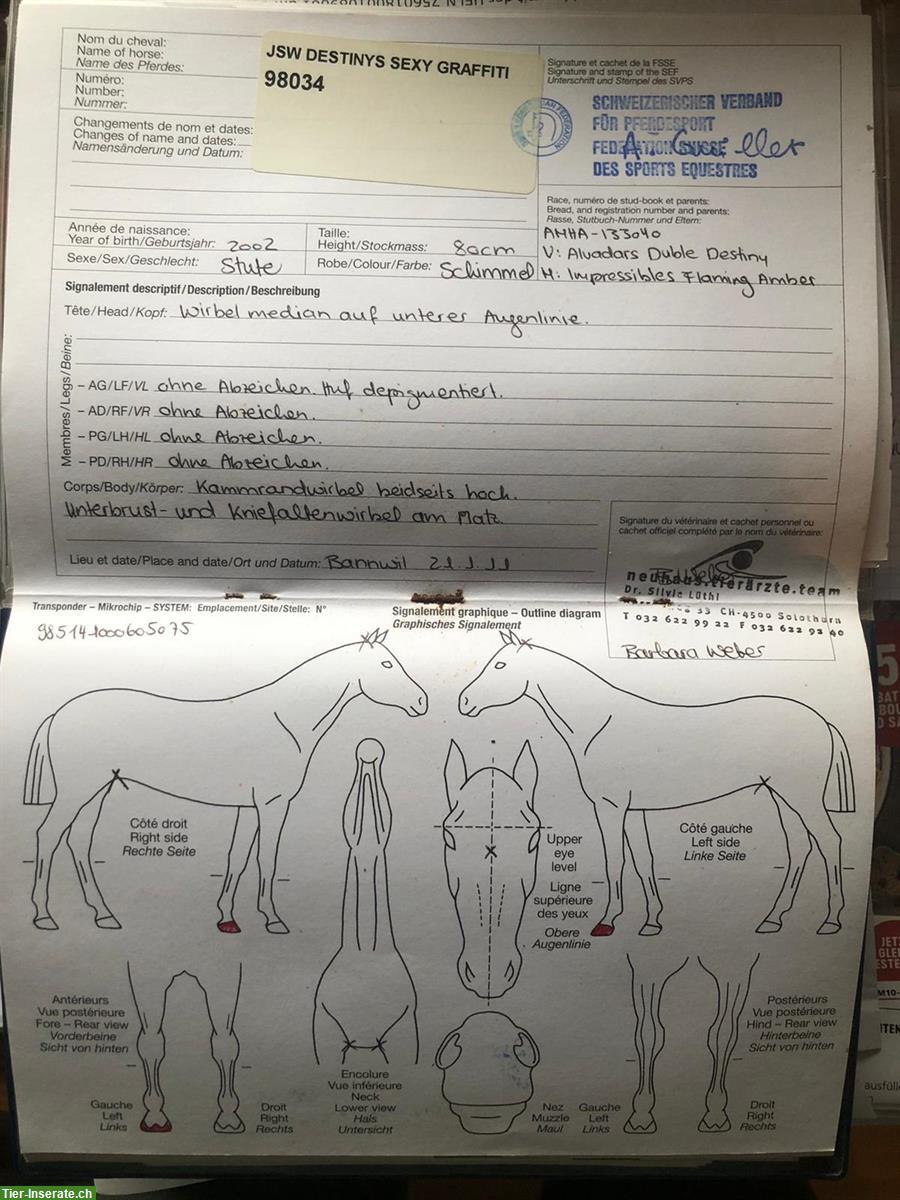 Nom du cheval:
Name of horse:
Name des Pferdes:
JSW DESTINYS SEXY GRAFFITI
98034
Numéro:
Number:
Nummer:
Changements de nom et dates:
Changes of name and dates:
Namensänderung und Datum:
Signature et cachet de la FSSE
Signature and stamp of the SEF
Unterschrift und Stempel des SVPS
SCHWEIZERISCHER VERBAND
FÜR PFERDESPORT
FEDERATION SUISSE
DES SPORTS EQUESTRES
Race, numéro de stud-book et parents:
Bread, and registration number and parents:
Rasse, Stutbuch-Nummer und Eltern:
AMHA-133040
V: Alvadars Duble Destiny
M: Impressibles Flaming Amber
Année de naissance:
Year of birth/Geburtsjahr: 2002
Taille:
Height/Stockmass: 80cm
Sexe/Sex/Geschlecht: Stute
Robe/Colour/Farbe: Schimmel
Signalement descriptif/Description/Beschreibung
Tête/Head/Kopf: Wirbel median auf unterer Augenlinie.
Membres/Legs/Beine:
– AG/LF/VL ohne Abzeichen. Huf depigmentiert.
– AD/RF/VR ohne Abzeichen.
– PG/LH/HL ohne Abzeichen.
– PD/RH/HR ohne Abzeichen.
Corps/Body/Körper: Kammrandwirbel beidseits hoch.
Unterbrust- und Kniefaltenwirbel am Platz.
Lieu et date/Place and date/Ort und Datum: Bannwil 21.1.11
Signature du vétérinaire et cachet personnel ou
cachet officiel complété par le nom du vétérinaire:
neuhaus.tierärzte.team
Dr. Silvie Lüthi
33 CH-4500 Solothurn
T 032 622 99 22 F 032 622 92 40
Barbara Weber
Transponder – Mikrochip – SYSTEM: Emplacement/Site/Stelle: N°
985141000605075
Signalement graphique – Outline diagram
Graphisches Signalement
Côté droit
Right side
Rechte Seite
Upper
eye
level
Ligne
supérieure
des yeux
Obere
Augenlinie
Côté gauche
Left side
Linke Seite
Antérieurs
Vue postérieure
Fore – Rear view
Vorderbeine
Sicht von hinten
Gauche
Left
Links
Droit
Right
Rechts
Encolure
Vue inférieure
Neck
Lower view
Hals
Untersicht
Nez
Muzzle
Maul
Postérieurs
Vue postérieure
Hind – Rear view
Hinterbeine
Sicht von hinten
Gauche
Left
Links
Droit
Right
Rechts
Tier-Inserate.ch